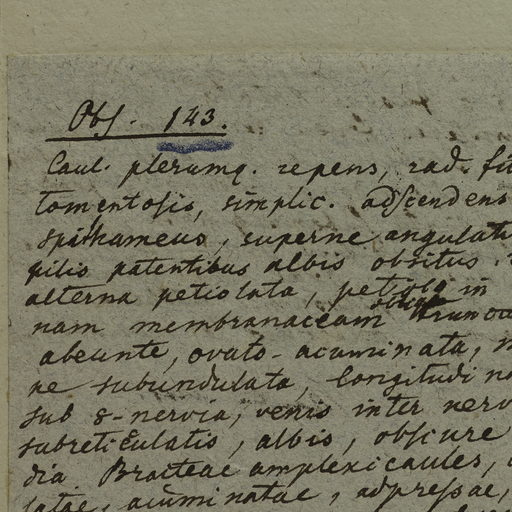 Obs. 143.
Caul. plerumq. repens, rad. fi
tomentosis, simplic. adscendens
spithameus, superne angulat
pilis patentibus albis obsitus.
alterna petiolata, petiolo in
nam membranaceam
abeunte, ovato-acuminata,
ne subundulata, longitudin
sub 8-nervia, venis inter nerv
subreticulatis, albis, obscure
dia. Bracteae amplexicaules,
latae, acuminatae, adpressae,